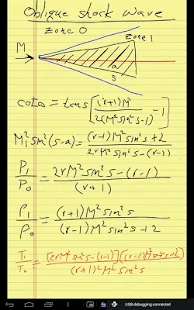 Oblique shock wave
zone 0
zone 1
M
a
s
cota = tans [(r+1)M²/2(M²sin²s-1) - 1]
M₁²sin²(s-a) = (r-1)M²sin²s+2/2rM²sin²s-(r-1)
P₁/P₀ = 2rM²sin²s-(r-1)/(r+1)
ρ₁/ρ₀ = (r+1)M²sin²s/(r-1)M²sin²s+2
T₁/T₀ = [2rM²s²-(r-1)][(r-1)M²s²+2]/(r+1)²M²sin²s
USB debugging connected